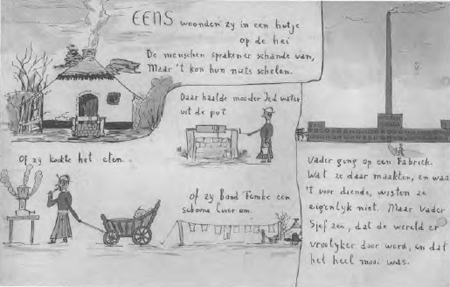 EENS woonden zy in een hutje
op de hei
De menschen spraken er schande van,
Maar 't kon hun niets schelen.
Daar haalde moeder Jed water
uit de put
Of zy kookte het eten...
Of zy Bond Femke een
schoone luier om.
Vader ging op een Fabriek.
Wat ze daar maakten, en waar
't voor diende, wisten ze
eigenlijk niet. Maar Vader
Sjef zei, dat de wereld er
vroolyker door werd, en dat
het heel mooi was.